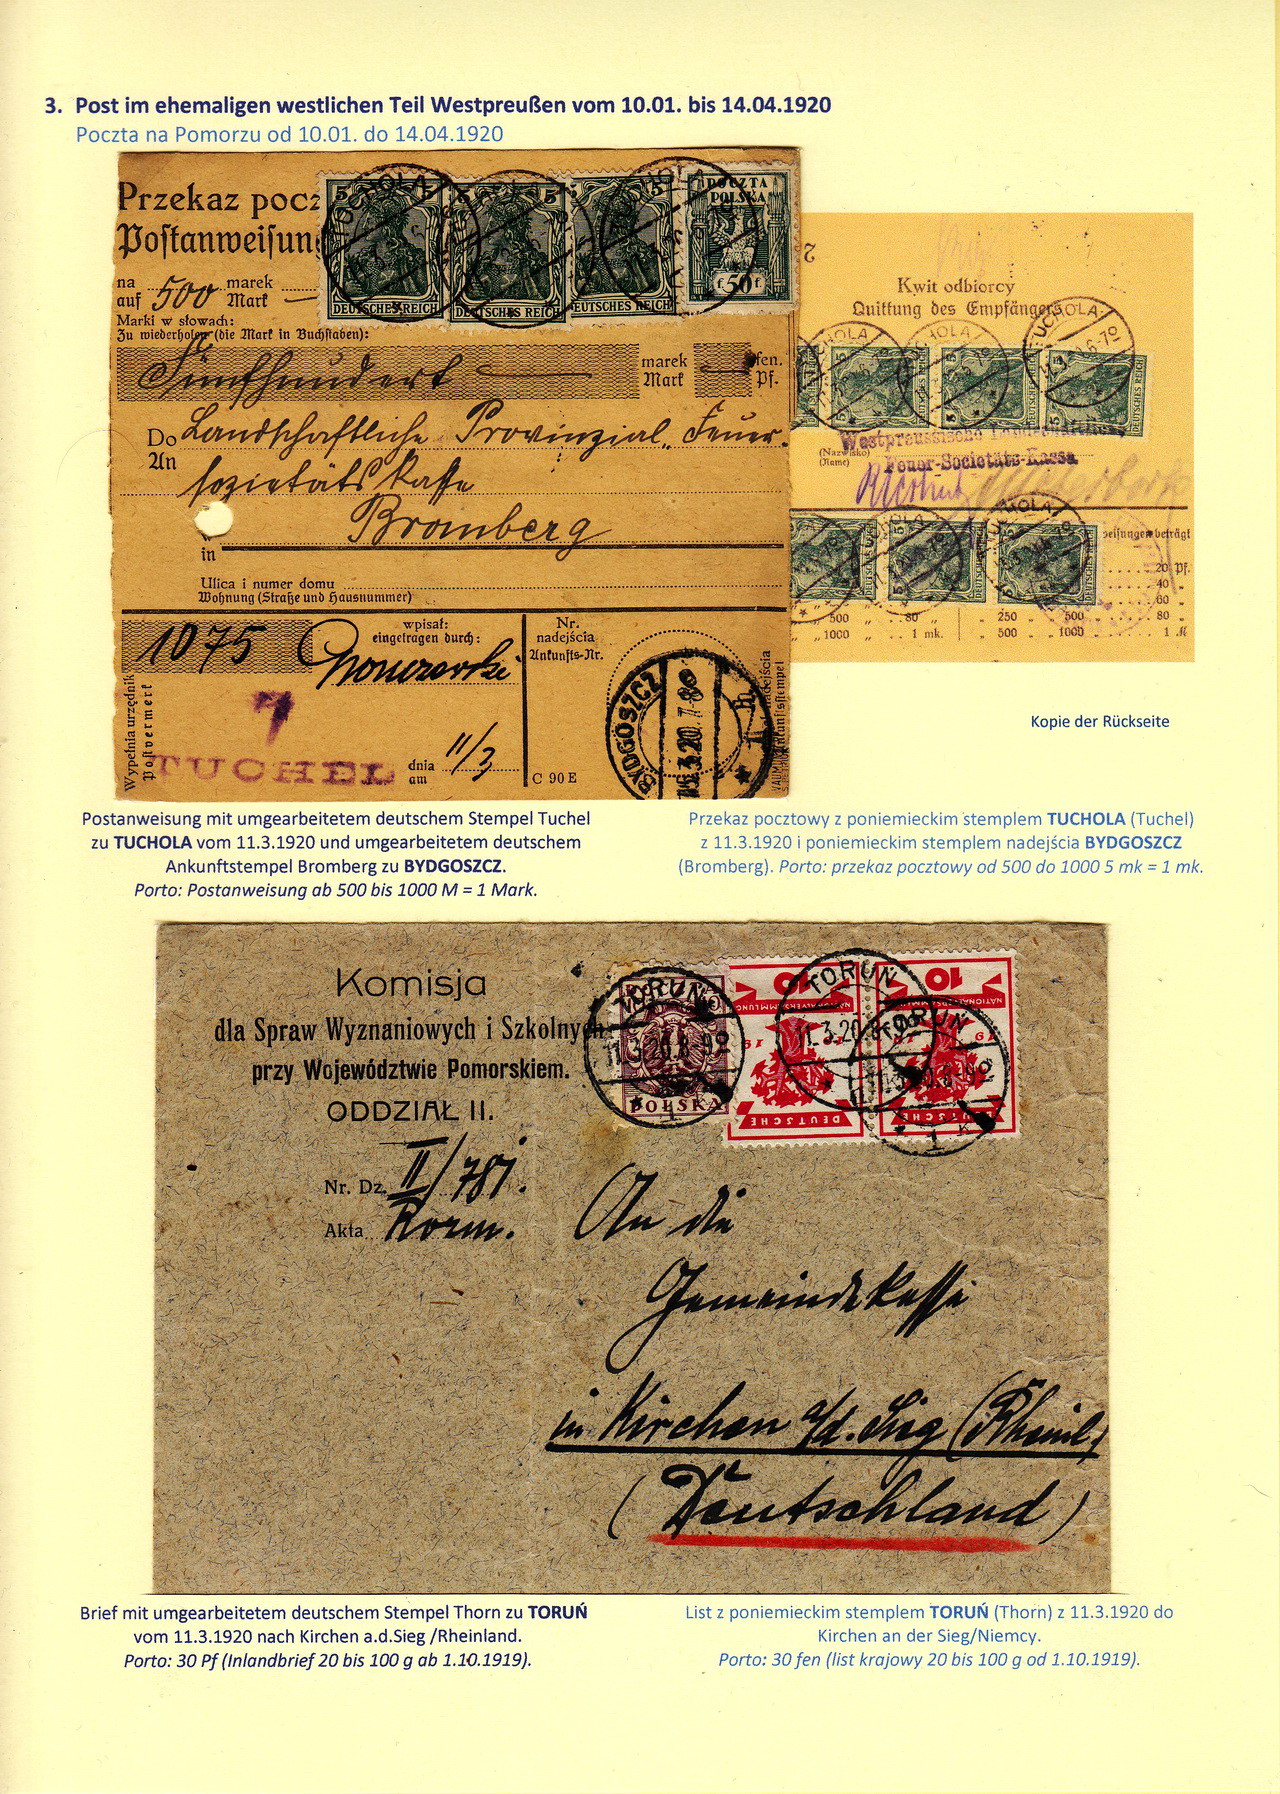 3. Post im ehemaligen westlichen Teil Westpreußen vom 10.01. bis 14.04.1920
Poczta na Pomorzu od 10.01. do 14.04.1920
Przekaz pocz
Postanweisun
5 5
5
5
DEUTSCHES REICH
DEUTSCHES REICH
DEUTSCHES REICH
POCZTA
POLSKA
f. 50 f.
TUCHOLA
na 500 marek
auf Mark
Marki w słowach:
Zu wiederholen (die Mark in Buchstaben):
Fünfhundert
marek fen.
Mark Pf.
Do Landschaftliche Provinzial-Feuer-
An
sozietäts Kasse
Bromberg
in
Ulica i numer domu
Wohnung (Straße und Hausnummer)
1075
wpisał:
eingetragen durch:
Nr.
nadejścia
Ankunfts-Nr.
Wypełnia urzędnik
Postvermerk
7
TUCHEL
dnia 11/3
am
C 90 E
BYDGOSZCZ
15.3.20.7-8
1 h
2
Kwit odbiorcy
Quittung des Empfängers
TUCHOLA
TUCHOLA
TUCHOLA
DEUTSCHES REICH
DEUTSCHES REICH
DEUTSCHES REICH
(Nazwisko)
(Name)
Westpreussische Landschaftliche
Feuer-Societäts-Kassa
DEUTSCHES REICH
DEUTSCHES REICH
DEUTSCHES REICH
beträgt
20 Pf.
40 "
60 "
" 500 " 80 " 250 " 500 80 "
" 1000 " 1 mk. 500 " 1000 1 M
Kopie der Rückseite
Postanweisung mit umgearbeitetem deutschem Stempel Tuchel
zu TUCHOLA vom 11.3.1920 und umgearbeitetem deutschem
Ankunftstempel Bromberg zu BYDGOSZCZ.
Porto: Postanweisung ab 500 bis 1000 M = 1 Mark.
Przekaz pocztowy z poniemieckim stemplem TUCHOLA (Tuchel)
z 11.3.1920 i poniemieckim stemplem nadejścia BYDGOSZCZ
(Bromberg). Porto: przekaz pocztowy od 500 do 1000 5 mk = 1 mk.
Komisja
dla Spraw Wyznaniowych i Szkolnych
przy Województwie Pomorskiem.
ODDZIAŁ II.
Nr. Dz. II/781.
Akta
TORUŃ
11.3.20.8-9
POLSKA
1
TORUŃ
11.3.20.8-9
10
NATIONALVERSAMMLUNG
DEUTSCHE
10
NATIONALVERSAMMLUNG
DEUTSCHE
TORUŃ
11.3.20.8-9
1 k
An die
Gemeindekasse
in Kirchen a/d. Sieg (Rheinl.)
(Deutschland)
Brief mit umgearbeitetem deutschem Stempel Thorn zu TORUŃ
vom 11.3.1920 nach Kirchen a.d.Sieg /Rheinland.
Porto: 30 Pf (Inlandbrief 20 bis 100 g ab 1.10.1919).
List z poniemieckim stemplem TORUŃ (Thorn) z 11.3.1920 do
Kirchen an der Sieg/Niemcy.
Porto: 30 fen (list krajowy 20 bis 100 g od 1.10.1919).